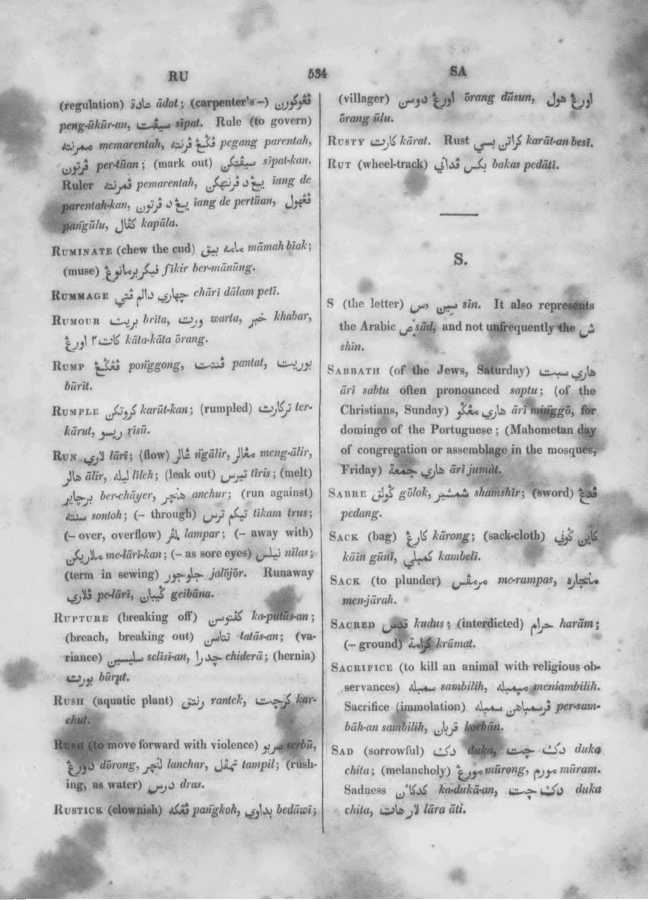 RU
534
SA
(regulation) عادة ādat; (carpenter's –) ڤڠوکورن
peng-ūkūr-an, سيڤت sīpat. Rule (to govern)
ممرنته memarentah, ڤڬڠ ڤرنته pegang parentah,
ڤرتون per-tūan; (mark out) سيڤتکن sīpat-kan.
Ruler ڤمرنته pemarentah, يڠ د ڤرنتهکن iang de
parentah-kan, يڠ د ڤرتون iang de pertūan, ڤڠهول
pangūlu, کڤال kapāla.
RUMINATE (chew the cud) مامه بيق māmah bīak;
(muse) ڤيکر برمانوڠ fīkir ber-mānūng.
RUMMAGE چهاري دالم ڤتي chāri dālam petī.
RUMOUR بريت brīta, ورت warta, خبر khabar,
کات٢ اورڠ kāta-kāta ōrang.
RUMP ڤڠڬڠ ponggong, ڤنتت pantat, بوريت
būrīt.
RUMPLE کروتکن karūt-kan; (rumpled) ترکارت ter-
kārut, ريسو rīsū.
RUN لاري lārī; (flow) ڠالر ngālir, مڠالر meng-ālir,
هالر ālir, ليله līleh; (leak out) تيرس tīris; (melt)
برچاير ber-chāyer, هنچر anchur; (run against)
سنته sontoh; (– through) تيکم ترس tīkam trus;
(– over, overflow) لمڤر lampar; (– away with)
ملاريکن me-lārī-kan; (– as sore eyes) نيلس nīlas;
(term in sewing) جلوجور jalōjōr. Runaway
ڤلاري pe-lārī, ڬيبان geibāna.
RUPTURE (breaking off) کڤوتسن ka-putūs-an;
(breach, breaking out) تتاسن tatās-an; (va-
riance) سليسين selīsī-an, چدرا chiderā; (hernia)
بورت būrut.
RUSH (aquatic plant) رنتق rantek, کرچت kar-
chut.
RUSH (to move forward with violence) سربو serbū,
دورڠ dōrong, لنچر lanchar, تمڤل tampil; (rush-
ing, as water) درس dras.
RUSTICK (clownish) ڤڠکه pangkoh, بداوي bedāwī;
(villager) اورڠ دوسن ōrang dūsun, اورڠ هول
ōrang ūlu.
RUSTY کارت kārat. Rust کراتن بسي karāt-an besī.
RUT (wheel-track) بکس ڤداتي bakas pedātī.
S.
S (the letter) سين س sin. It also represents
the Arabic ص sād, and not unfrequently the ش
shīn.
SABBATH (of the Jews, Saturday) هاري سبت
ārī sabtu often pronounced saptu; (of the
Christians, Sunday) هاري مڠڬو ārī minggō, for
domingo of the Portuguese; (Mahometan day
of congregation or assemblage in the mosques,
Friday) هاري جمعة ārī jumāt.
SABRE ڬولق gōlok, شمشير shamshīr; (sword) ڤدڠ
pedang.
SACK (bag) کارڠ kārong; (sack-cloth) کاين ڬوني
kāin gūnī, کمبلي kambelī.
SACK (to plunder) مرمڤس me-rampas, منجاره
men-jārah.
SACRED قدس kudus; (interdicted) حرام harām;
(– ground) کرامة krāmat.
SACRIFICE (to kill an animal with religious ob-
servances) سمبله sambilih, ميمبله meniambilih.
Sacrifice (immolation) ڤرسمباهن سمبله per-sam-
bāh-an sambilih, قربان korbān.
SAD (sorrowful) دک duka, دک چيت duka
chīta; (melancholy) مورڠ mūrong, مورم mūram.
Sadness کدکاٴن ka-dukā-an, دک چيت duka
chīta, لار هات lāra āti.